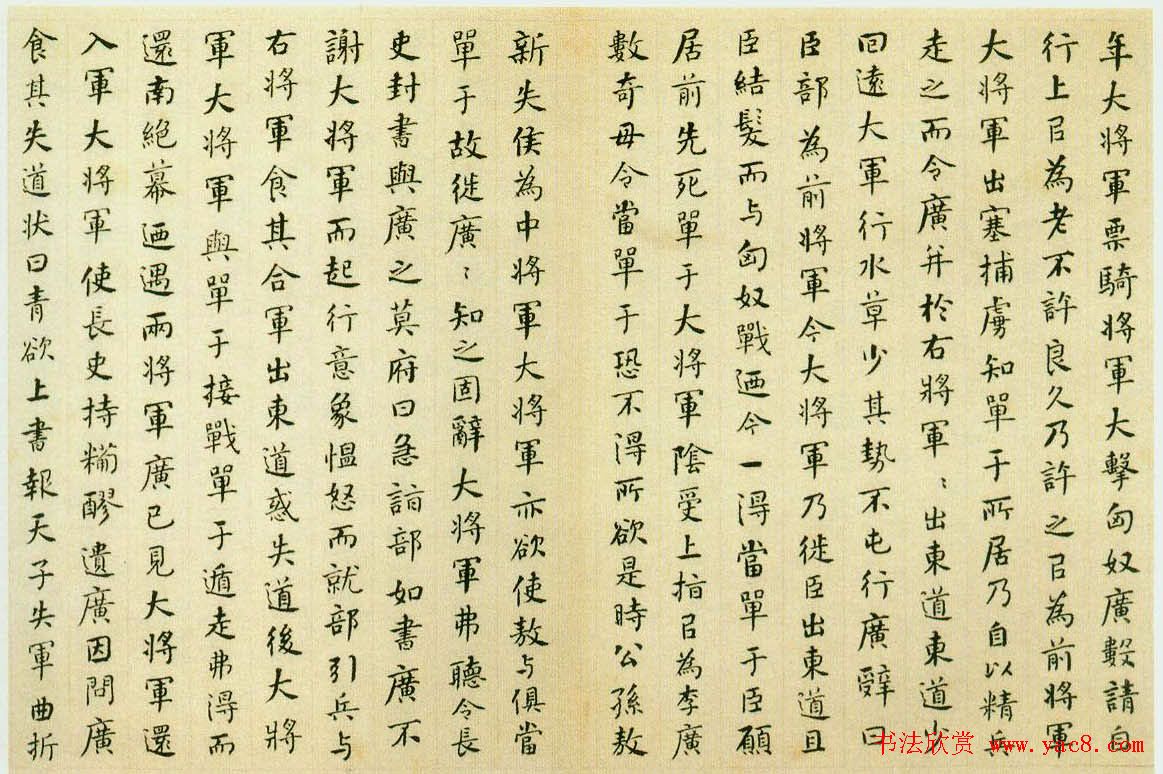 年大將軍票騎將軍大擊匈奴廣數請自
行上㠯為老不許良久乃許之㠯為前將軍
大將軍出塞捕虜知單于所居乃自以精兵
走之而令廣并於右將軍〻出東道東道少
回遠大軍行水草少其勢不屯行廣辭曰
臣部為前將軍今大將軍乃徙臣出東道且
臣結髮而与匈奴戰迺今一得當單于臣願
居前先死單于大將軍陰受上指㠯為李廣
數奇毋令當單于恐不得所欲是時公孫敖
新失侯為中將軍大將軍亦欲使敖与俱當
單于故徙廣〻知之固辭大將軍弗聽令長
史封書與廣之莫府曰急詣部如書廣不
謝大將軍而起行意象慍怒而就部引兵与
右將軍食其合軍出東道惑失道後大將
軍大將軍與單于接戰單于遁走弗得而
還南絕幕迺遇兩將軍廣已見大將軍還
入軍大將軍使長史持糒醪遺廣因問廣
食其失道狀曰青欲上書報天子失軍曲折
书法欣赏 www.yac8.com